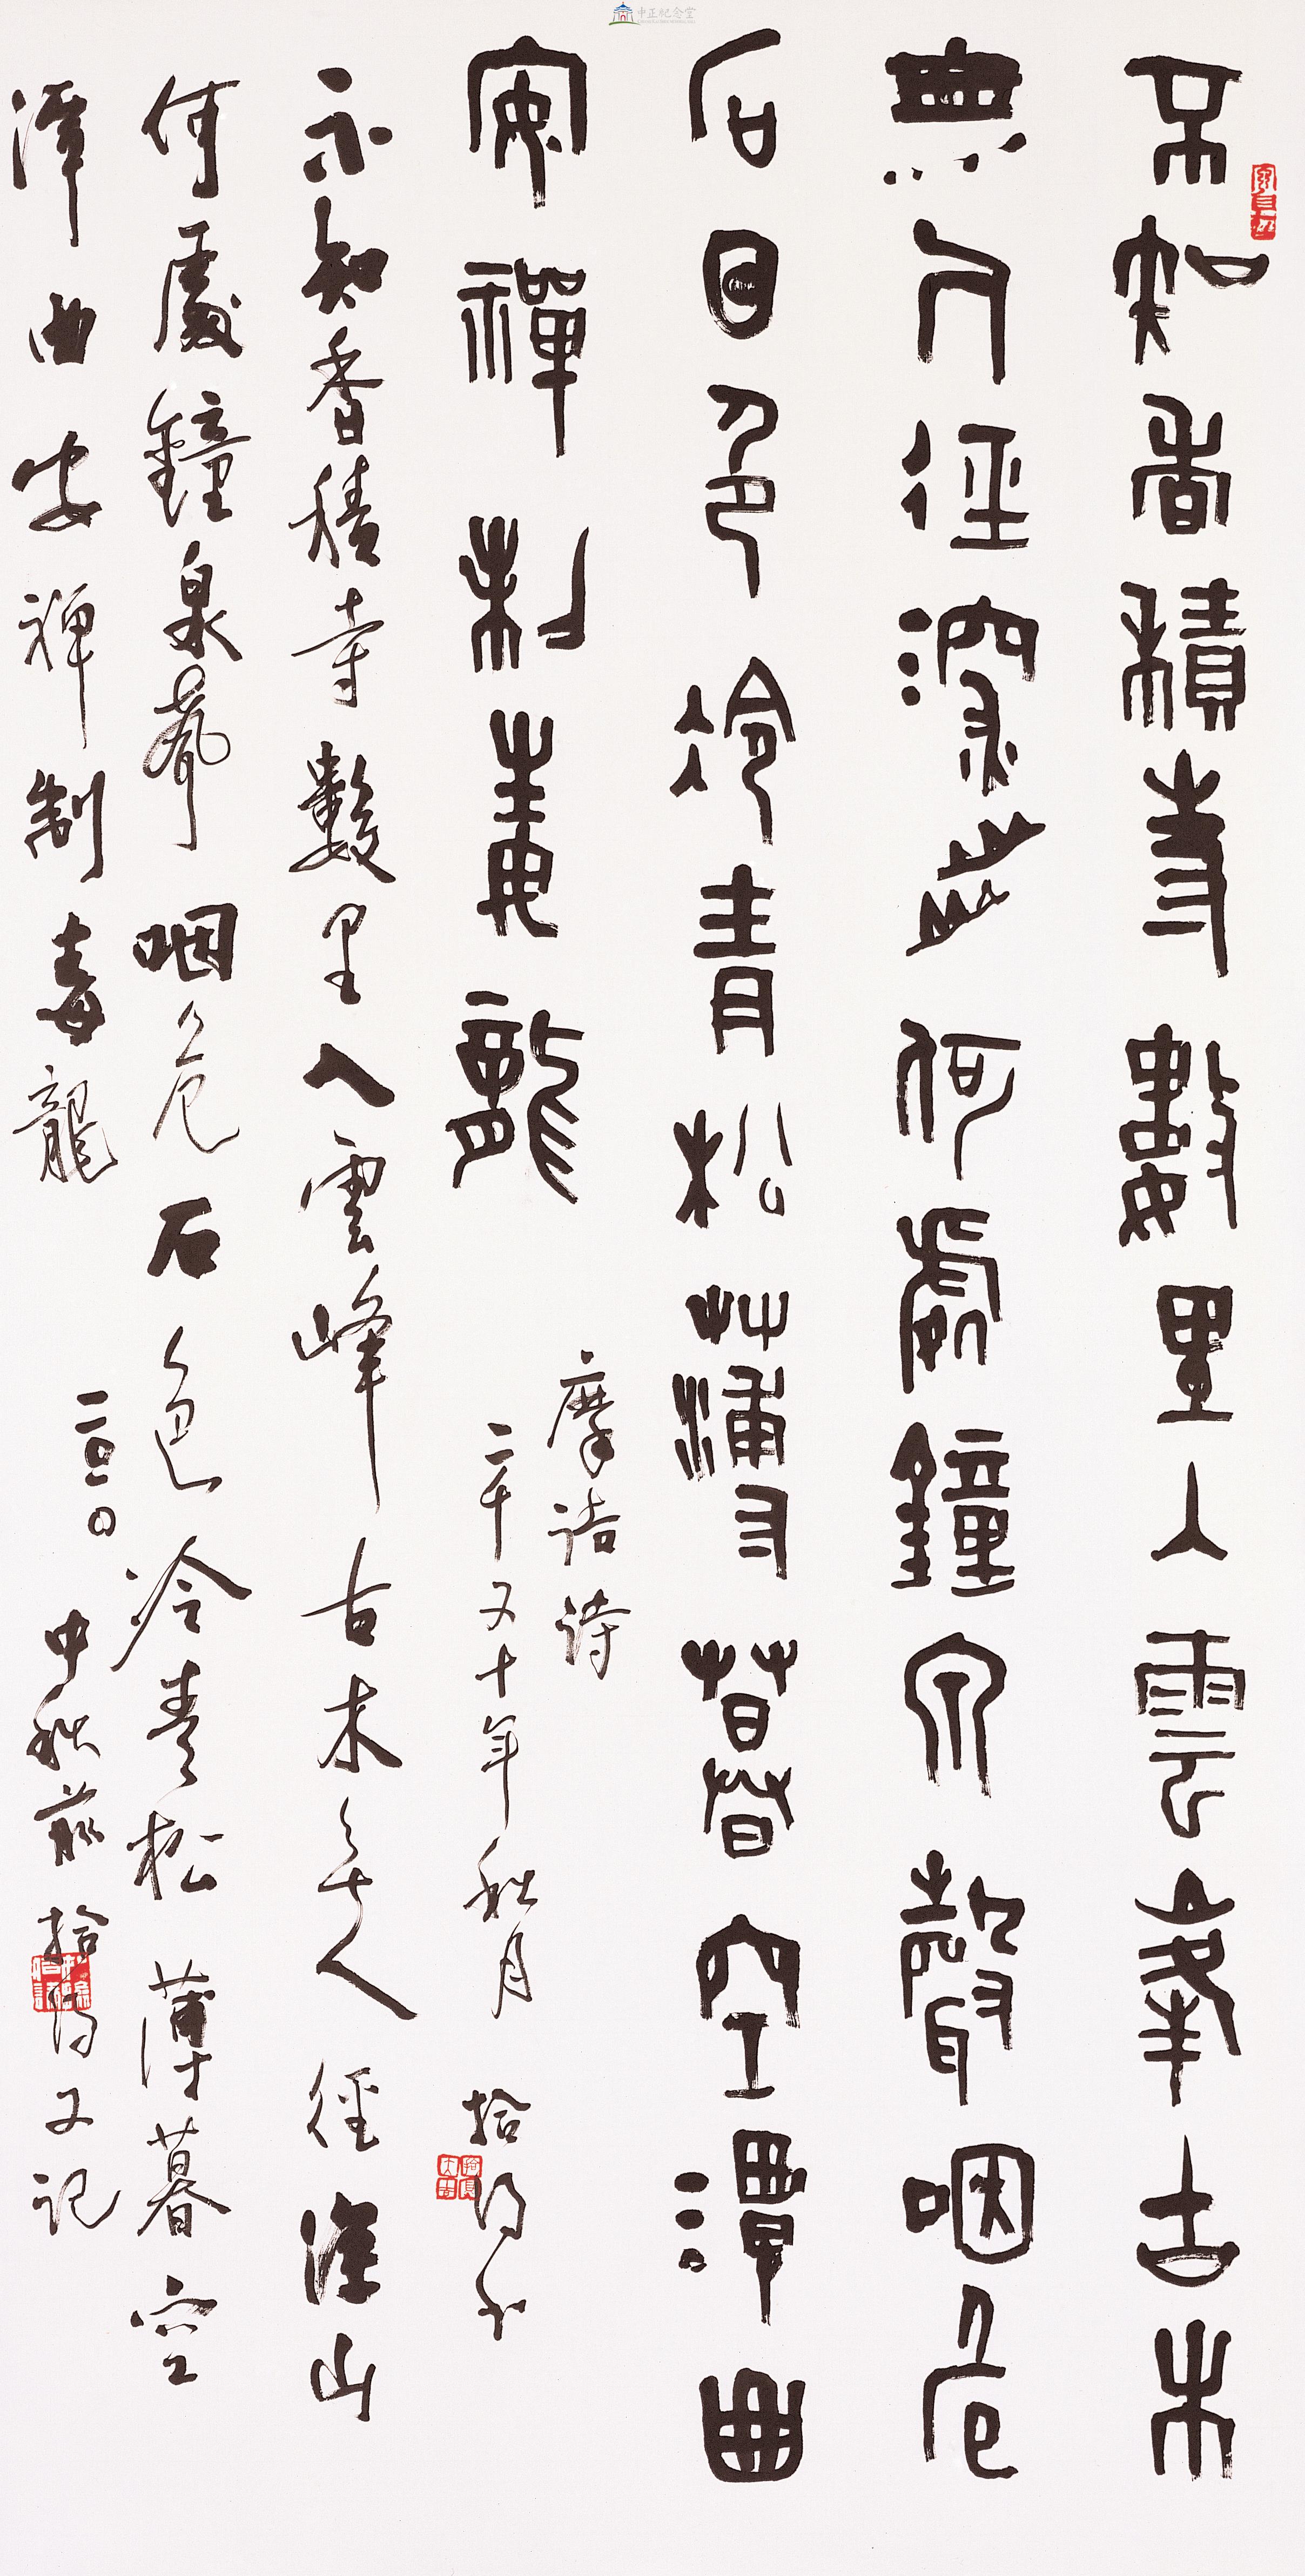 中正紀念堂
不知香積寺數里入雲峯古木
無人徑深山何處鐘泉聲咽危
石日色冷青松薄暮空潭曲
安禪制毒龍
摩詰詩
二千又十年秋月 拾得書
不知香積寺數里入雲峰古木無人徑深山
何處鐘泉聲咽危石色冷青松薄暮空
潭曲安禪制毒龍 二〇一〇 中秋前拾得又記